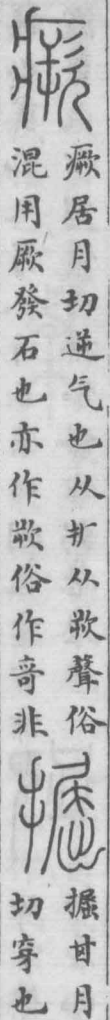 瘚居月切逆气也从疒从欮聲俗
混用厥發石也亦作欮俗作竒非
掘甘月
切穿也